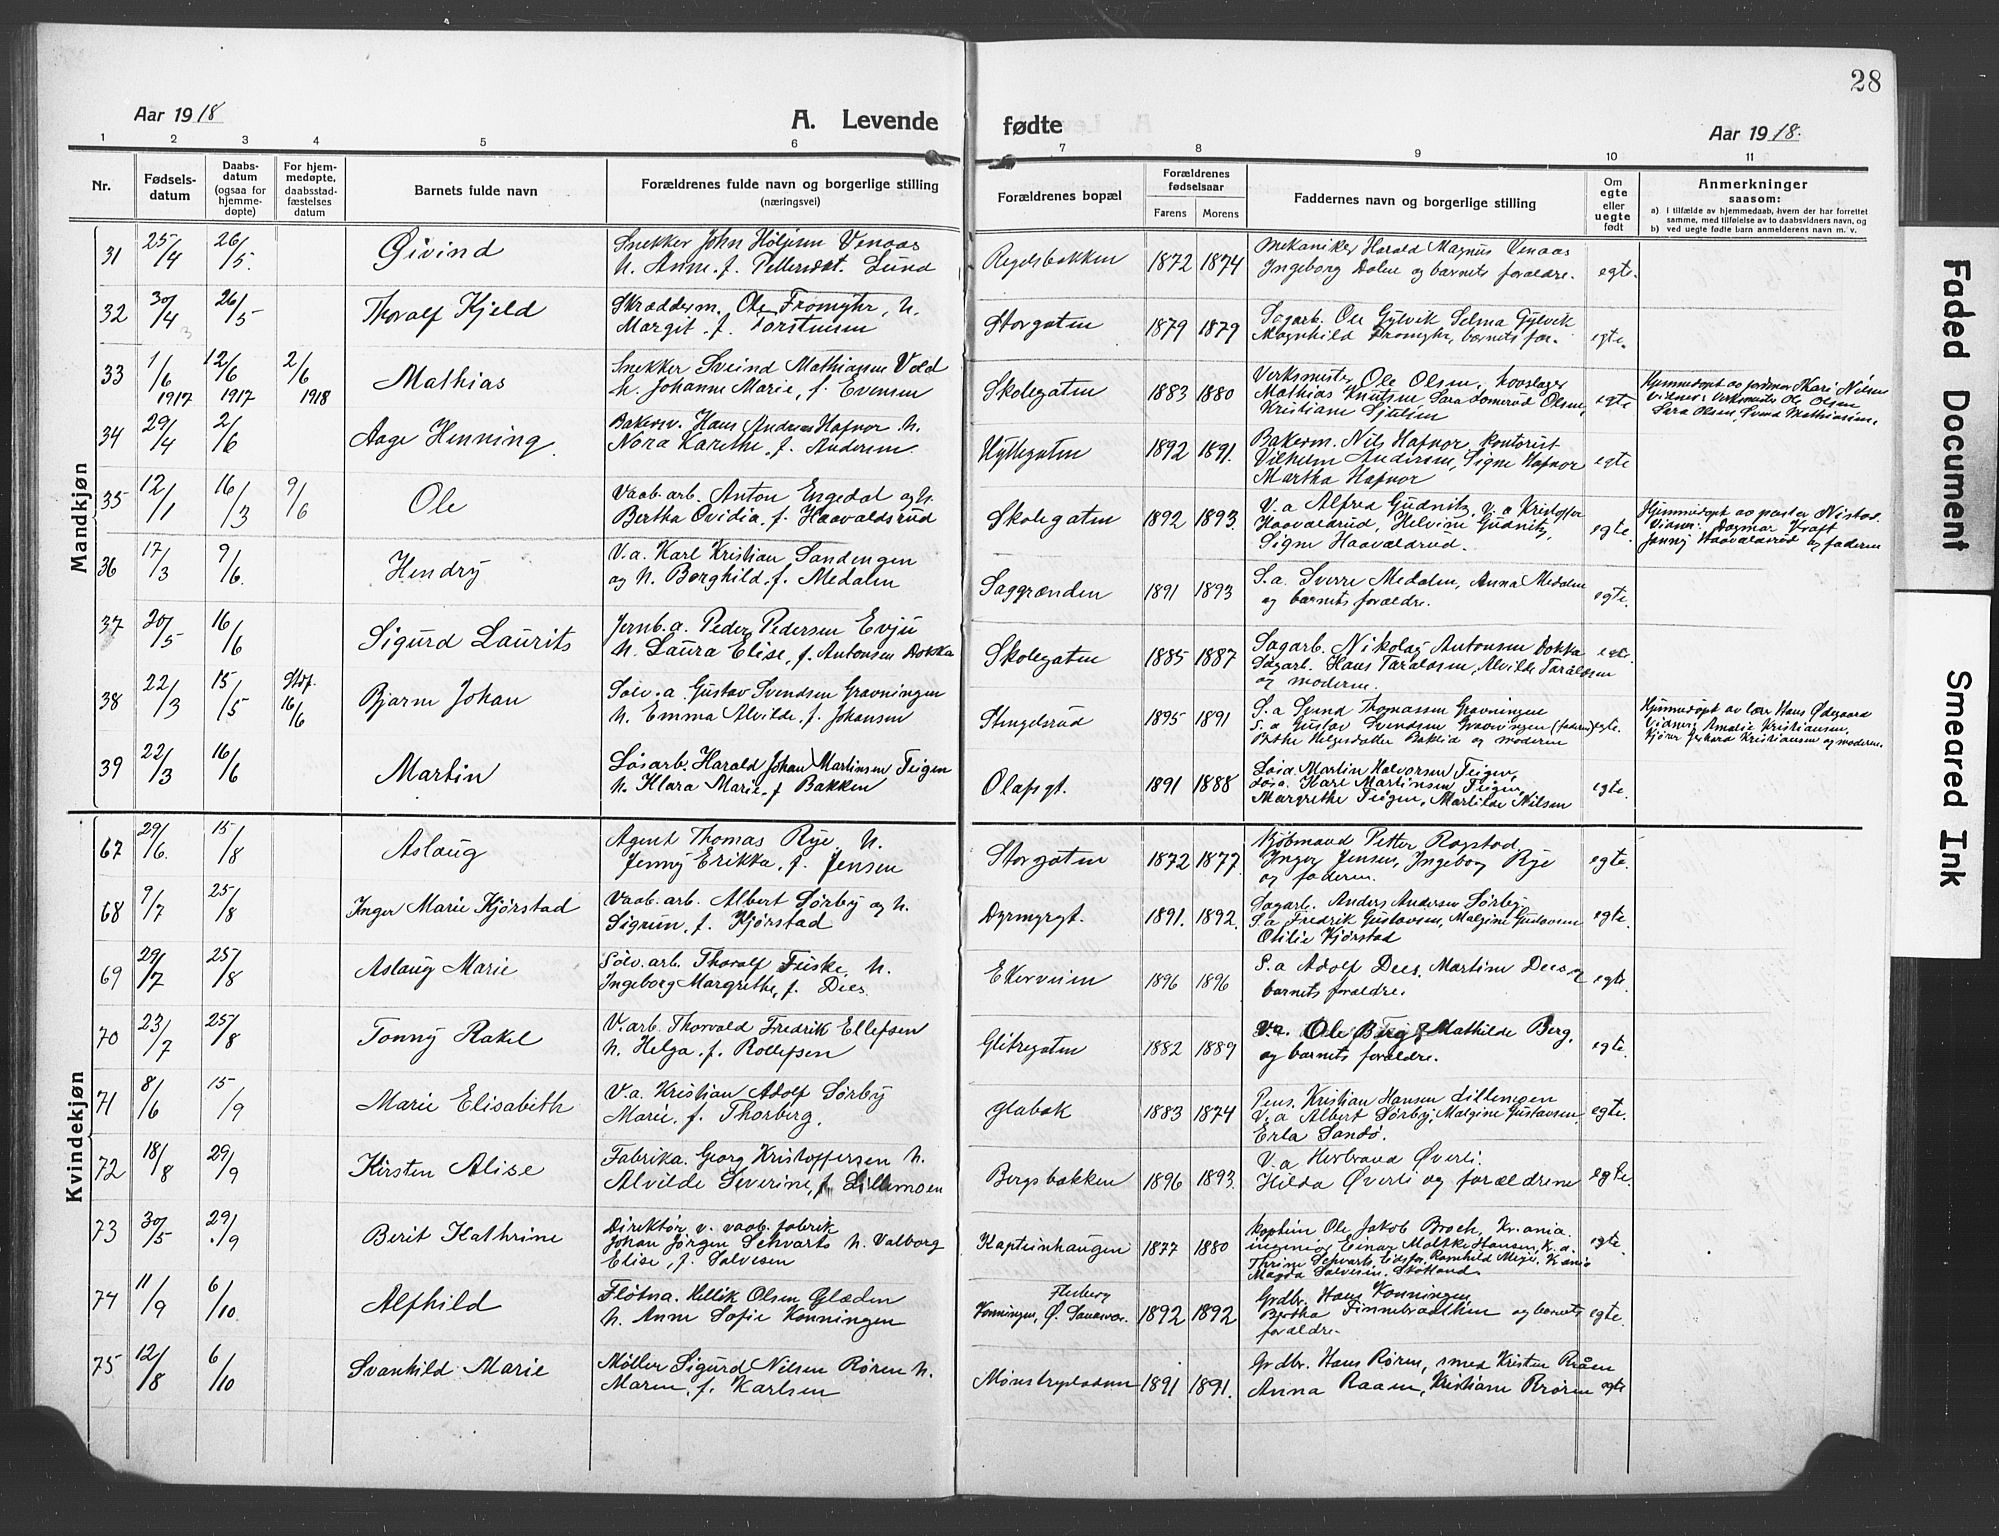 28
Aar 1918
A. Levende
fødte
Aar 1918.
1 2 3 4 5 6 7 8 9 10 11
Nr.
Fødsels-
datum
Daabs-
datum
(ogsaa for
hjemme-
døpte)
For hjem-
medøpte,
daabsstad-
fæstelses
datum
Barnets fulde navn
Forældrenes fulde navn og borgerlige stilling
(næringsvei)
Forældrenes bopæl
Forældrenes
fødselsaar
Farens Morens
Faddernes navn og borgerlige stilling
Om
egte
eller
uegte
født
Anmerkninger
saasom:
a) i tilfælde av hjemmedaab, hvem der har forrettet
samme, med tilføielse av to daabsvidners navn, og
b) ved uegte fødte barn anmelderens navn m. v.
Mandkjøn
31 25/4 26/5. Øivind
Snekker John Venaas
h. Anne. f. Lund
1872 1874
Mekaniker Harald Magnus Venaas
Ingeborg Dalen og barnets forældre. egte.
32 30/4 26/5 Thoralf Kjeld
Skrædderm. Ole Fromyhr, h.
Margit. f. Torstensen
Storgaten 1879 1879
Sagarb. Ole Gylvik Selma Gylvik
Magnhild Fromyhr, barnets far. egte.
33 1/6 1917 12/6 1917 2/6 1918 Mathias
Snekker Sveind Mathiasen Vold
h. Johanne Marie, f. Evensen
Skolegaten 1883 1880
Verksmester Ole Olsen,
Mathias Knutsen, Sara Olsen,
Kristiane egte
Hjemmedøpt av jordmor Kari Nilsen
Vidner: Verksmester Ole Olsen
Sara Olsen, Svend Mathiassen.
34 29/4 2/6 Aage Henning.
Bakersv. Hans Andreas Hafnor h.
Nora Karethe. f. Andersen
Hyttegaten 1892 1891.
Bakerm. Nils Hafnor, kontorist
Vilhelm Andersen, Signe Hafnor
Martha Hafnor egte
35 12/1 16/3 9/6 Ole
Vaab. arb. Anton Engedal og h.
Bertha Ovidia, f. Haavaldsrud
Skolegaten 1892 1893.
V. a Alfred Gudnitz, v. a Kristoffer
Haavaldrud, Helvine Gudnitz,
Signe Haavaldrud. egte.
Hjemmedøpt av pastor Nistad.
Vidner: Dagmar Kraft
Jenny Haavaldsrud og faderen
36 17/3 9/6. Hendry
V. a. Karl Kristian Sandengen
og h. Borghild. f. Medalen
Saggrænden 1891 1893
S. a. Sverre Medalen, Anna Medalen
og barnets forældre. egte.
37 20/5 16/6 Sigurd Laurits
Jernb. a. Peder Pedersen Evju
h. Laura Elise, f. Antonsen Dokka
Skolegaten 1885 1887
Sagarb. Nikolay Antonsen Dokka
Sagarb. Hans Taraldsen, Alvilde Taraldsen
og moderen. egte.
38 22/3 15/5 Stdf. 16/6 Bjarne Johan
Sølv. a Gustav Svendsen Gravningen
h. Emma Alvilde. f. Johansen
Stengelsrud 1895 1891
S. a Svend Thomassen Gravningen
S. a Gustav Svendsen Gravningen (faderen)
Berthe Helgesdatter Baklid og moderen egte.
Hjemmedøpt av lærer Hans Ødegaard
Vidner: Amalie Kristiansen,
Kristiansen og moderen.
39 22/3 16/6 Martin
Løsarb. Harald Johan Martinsen Teigen
h. Klara Marie. f Bakken
Olafsgt. 1891 1888
Løsa. Martin Halvorsen Teigen,
Løsa. Karl Martinsen Teigen,
Margrethe Teigen, Martilde Nilsen egte.
Kvindekjøn
67 29/6. 15/8 Aslaug
Agent Thomas Rye. h.
Jenny Erikka, f. Jensen
Storgaten 1872 1877.
Kjøbmand Petter Rogstad,
Inger Jensen, Ingeborg Rye
og faderen. egte
68 9/7 25/8 Inger Marie Kjørstad
Vaab. arb. Albert Sørby og h.
Sigrun, f. Kjørstad
Dyrmyrgt. 1891. 1892.
Sagarb. Anders Andersen Sørby,
S. a Fredrik Gustavsen, Malgine Gustavsen
Otilie Kjørstad egte.
69 29/7 25/8 Aslaug Marie
Sølv. arb. Thoralf Fiske, h.
Ingeborg Margrethe, f. Dees.
Ekerveien 1896 1896
S. a Adolf Dees, Martine Dees og
barnets forældre. egte.
70 23/7 25/8 Tonny Rakel
V. arb. Thorvald Fredrik Ellefsen
h. Helga. f. Rollefsen
Glitregaten 1882 1889
V. a. Ole Berg, Mathilde Berg,
og barnets forældre. egte.
71 8/6 15/9 Marie Elisabeth
V. a. Kristian Adolf Sørby
Marie. f. Thorberg.
Glabak 1883 1874
Pens. Kristian Hansen Lillemoen
V. a Albert Sørby, Malgine Gustavsen,
Erla Sandø. egte.
72 18/8 29/9 Kirsten Alise
Fabrika. Georg Kristoffersen h.
Alvilde Severine, f. Lillemoen
Bergsbakken 1896 1893.
V. a Herbrand Øverli.
Hilda Øverli og forældrene egte.
73 30/5 29/9 Berit Kathrine
Direktør v. vaab. fabrik
Johan Jørgen Schvarts h. Valborg
Elise, f. Salvesen
Kapteinhaugen 1877 1880
Kaptein Ole Jakob Broch, Kr. ania.
ingeniør Einar Moltke Hansen, K. a.
Thrine Schvarts, Eidsfos, Ramhild Meyer, K. ania
Magda Salvesen. Skotland. egte.
74 11/9 6/10 Alfhild
Fløtna. Hellik Olsen Glæden
h. Anne Sofie Konningen
Flesberg
Konningen, Ø. 1892 1892
Grdbr. Hans Konningen
Bertha Finnebraathen og barnets
forældre. egte.
75 12/8 6/10 Svanhild Marie
Møller Sigurd Nilsen Røren h.
Maren, f. Karlsen
1891 1891.
Grdbr. Hans Røren, smed Kristen Raaen
Anna Raaen, Kristiane Røren egte
Faded Document
Smeared Ink